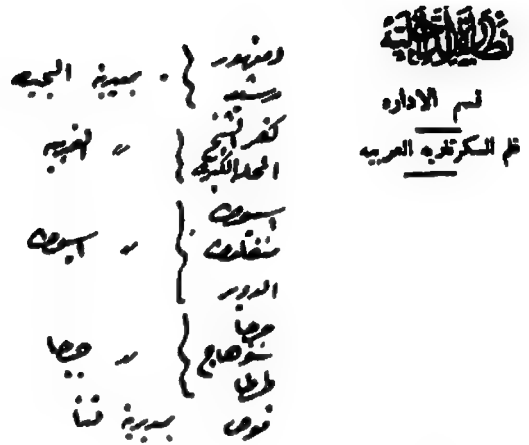 نظارة الداخلية
قسم الاداره
قلم السكرتاريه العربيه
دمنهور
رشيد } بمديرية البحيره
كفر الشيخ
المحله الكبرى } 〃 الغربيه
اسيوط
منفلوط } 〃 اسيوط
الدوير
جرجا
سوهاج } 〃 جرجا
طهطا
قوص بمديرية قنا